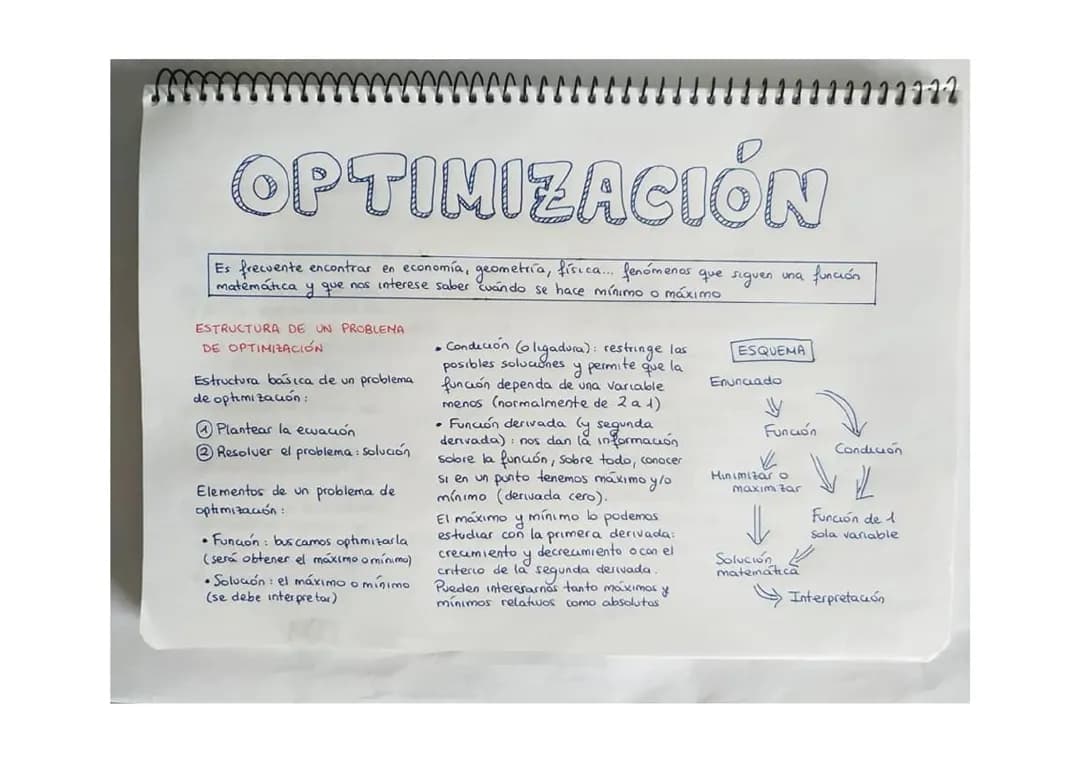 OPTIMIZACIÓN
Es frecuente encontrar en economía, geometría, física... fenómenos que siguen una función
matemática y que nos interese saber cuándo se hace mínimo o máximo
ESTRUCTURA DE UN PROBLEMA
DE OPTIMIZACIÓN
Estructura básica de un problema
de optimización:
① Plantear la ecuación
② Resolver el problema: solución
Elementos de un problema de
optimización:
• Función: buscamos optimizarla
(será obtener el máximo o mínimo)
• Solución: el máximo o mínimo
(se debe interpretar)
• Condición (o ligadura): restringe las
posibles soluciones y permite que la
función dependa de una variable
menos (normalmente de 2 a 1)
• Función derivada (y segunda
derivada): nos dan la información
sobre la función, sobre todo, conocer
si en un punto tenemos máximo y/o
mínimo (derivada cero).
El máximo y mínimo lo podemos
estudiar con la primera derivada:
crecimiento y decrecimiento o con el
criterio de la segunda derivada.
Pueden interesarnos tanto máximos y
mínimos relativos como absolutos
ESQUEMA
Enunciado
Función
Condición
Minimizar o
maximizar
Función de 1
sola variable
Solución
matemática
Interpretación